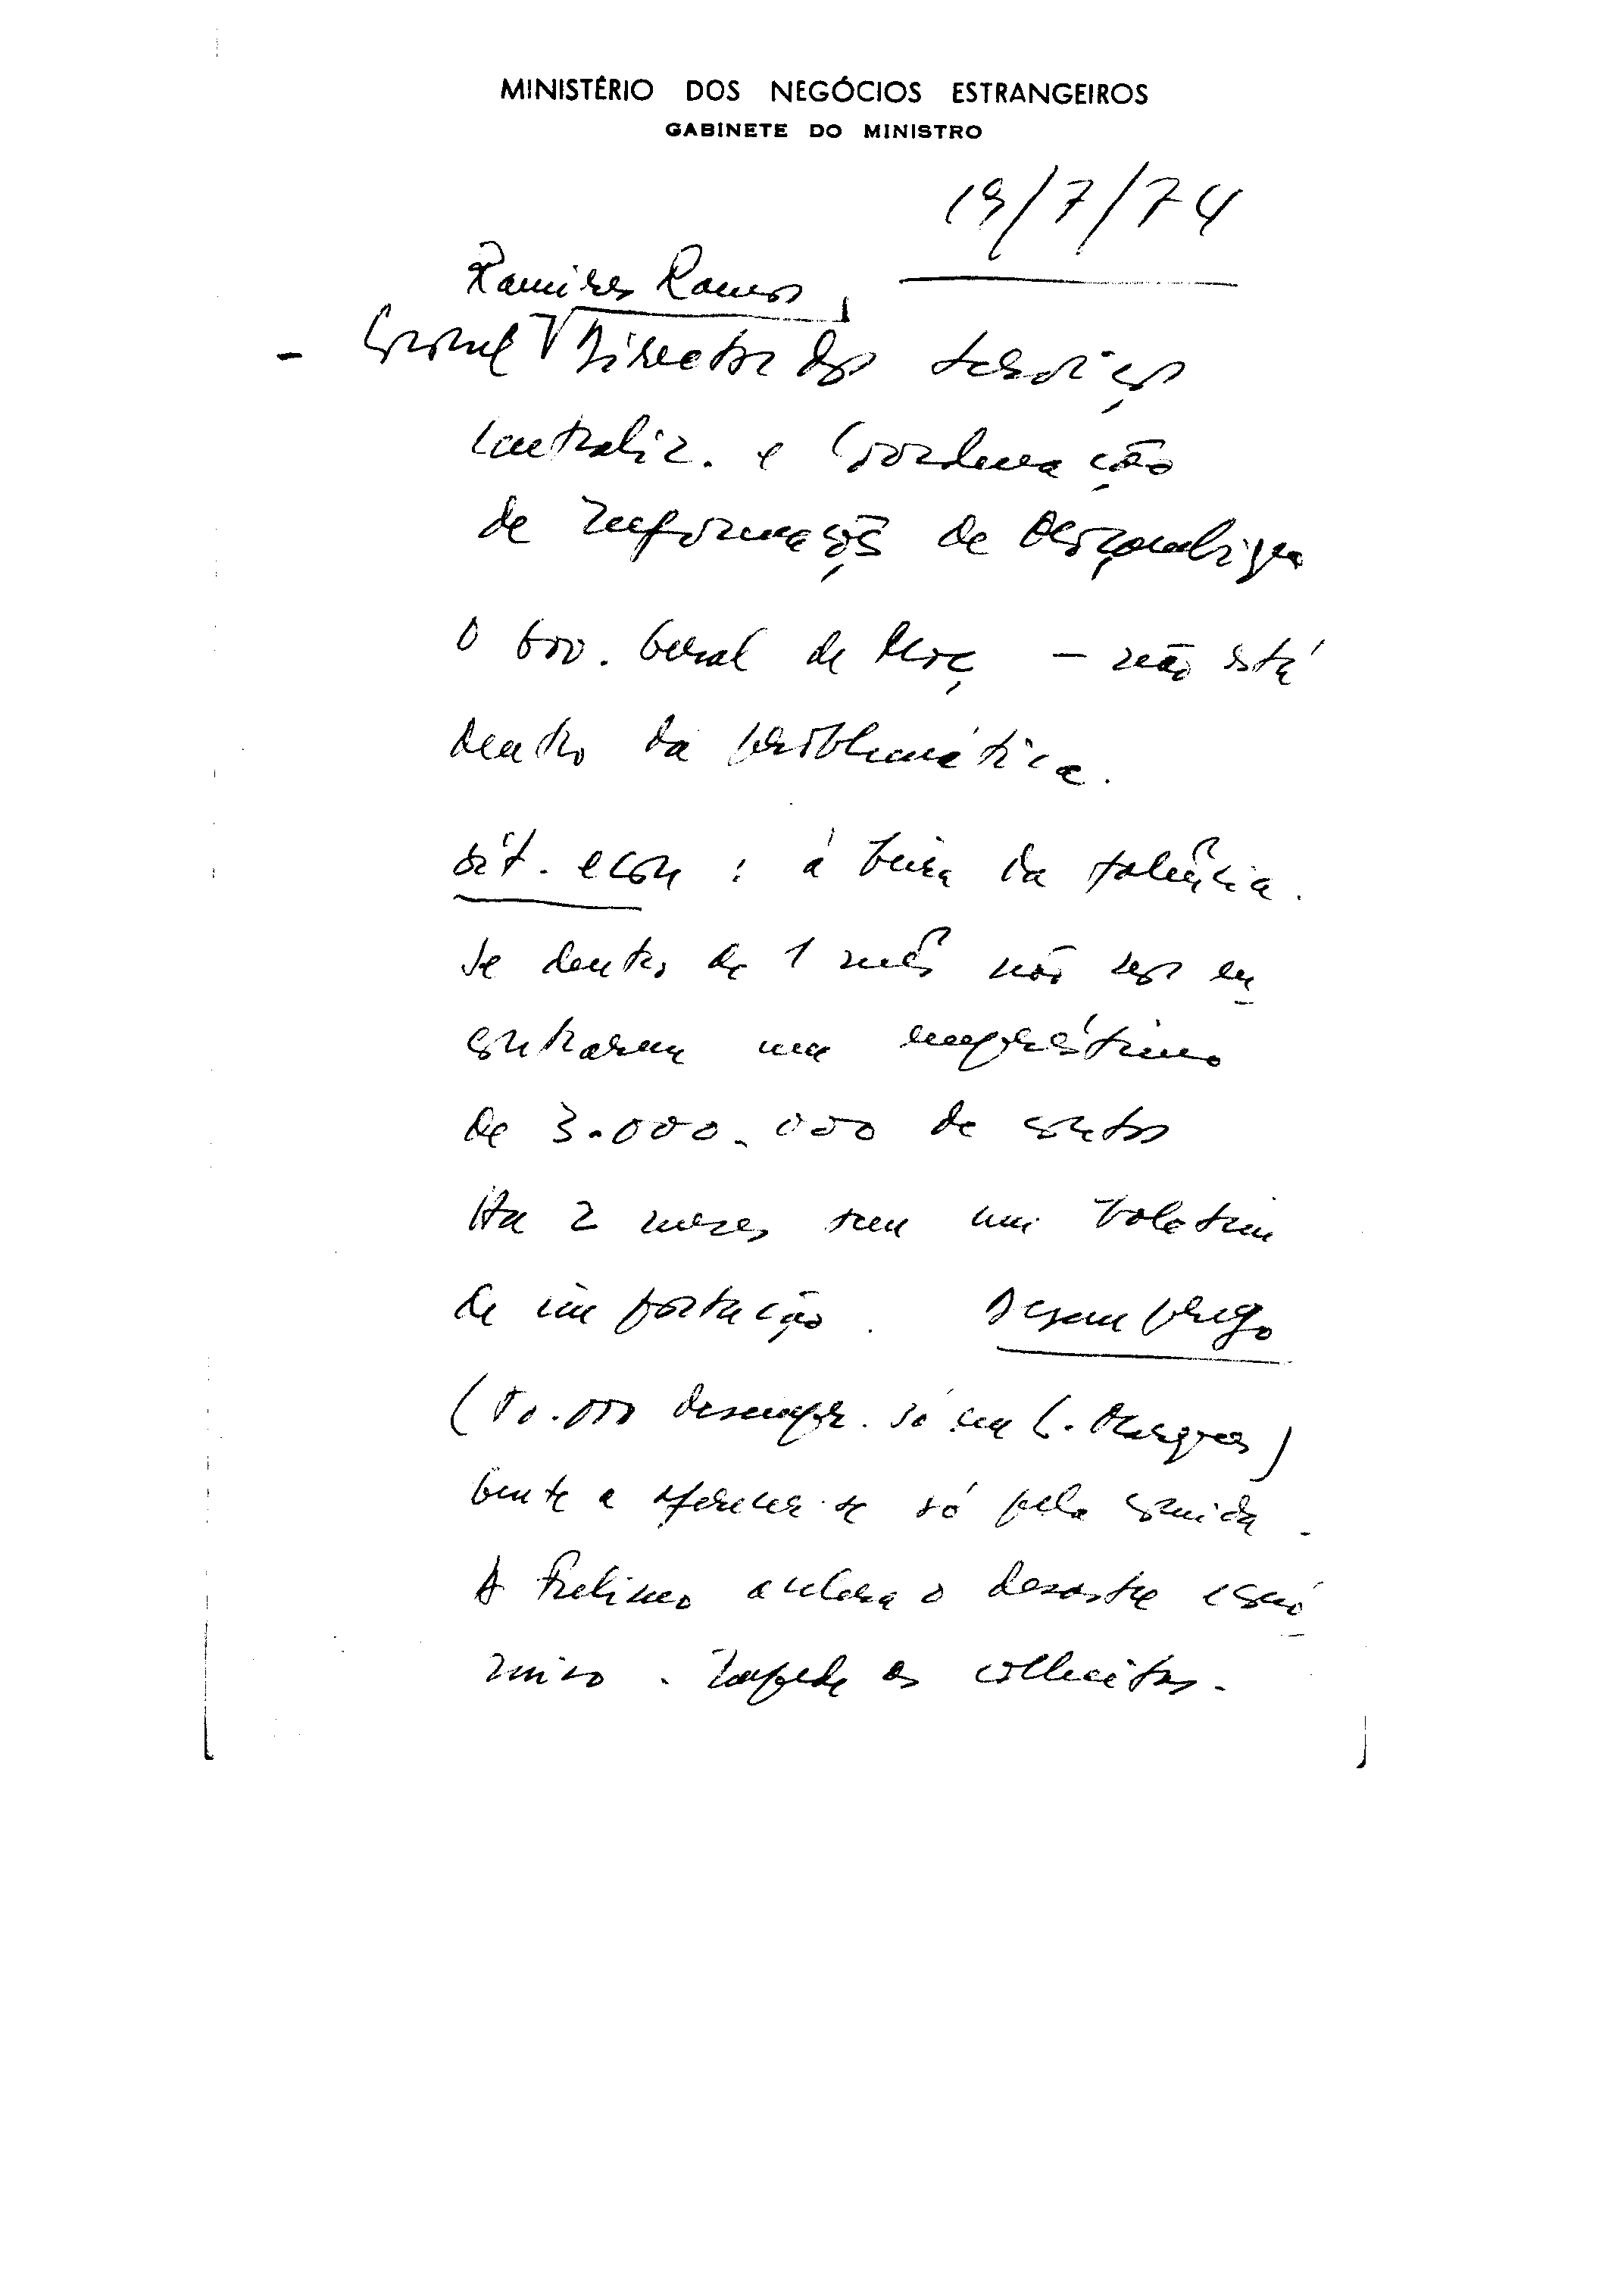 MINISTÉRIO DOS NEGÓCIOS ESTRANGEIROS
GABINETE DO MINISTRO
19/7/74
Ramires Ramos,
- Coronel V Director dos Serviços
Centraliz. e Coordenação
de Informações de Moçambique
O Gov. Geral de Moç - não está
dentro da problemática.
Sit. econ : à beira da falência.
Se dentro de 1 mês não se en
contrarem um empréstimo
de 3.000.000 de contos
Ha 2 meses sem um boletim
de importação. Desemprego
(50.000 desempr. só em L. Marques)
Gente a oferecer-se só pela comida.
A Frelimo acelera o desastre econó
mico. Impede as colheitas.